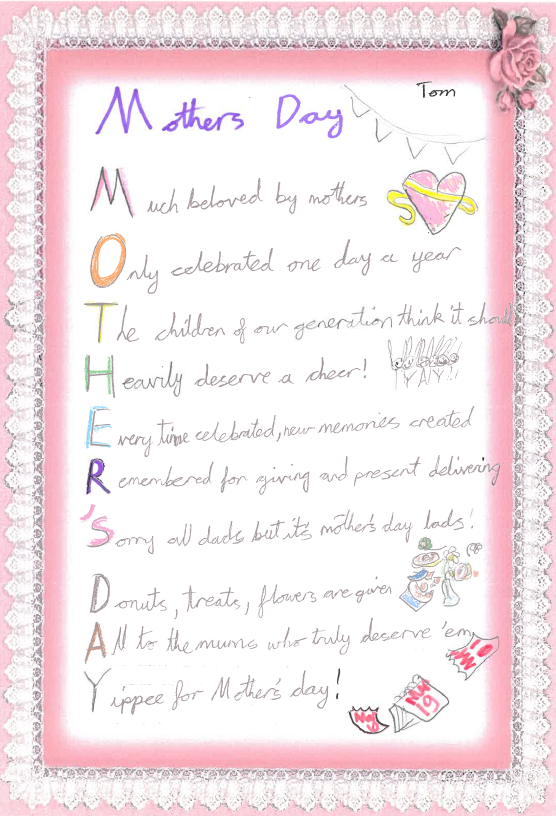 Tom
Mothers Day
Much beloved by mothers
Only celebrated one day a year
The children of our generation think it should
Heavily deserve a cheer!
YAY!!
Every time celebrated, new memories created
Remembered for giving and present delivering
'Sorry all dads but it's mother's day lads!
Donuts, treats, flowers are given
All to the mums who truly deserve 'em,
Yippee for Mother's day!